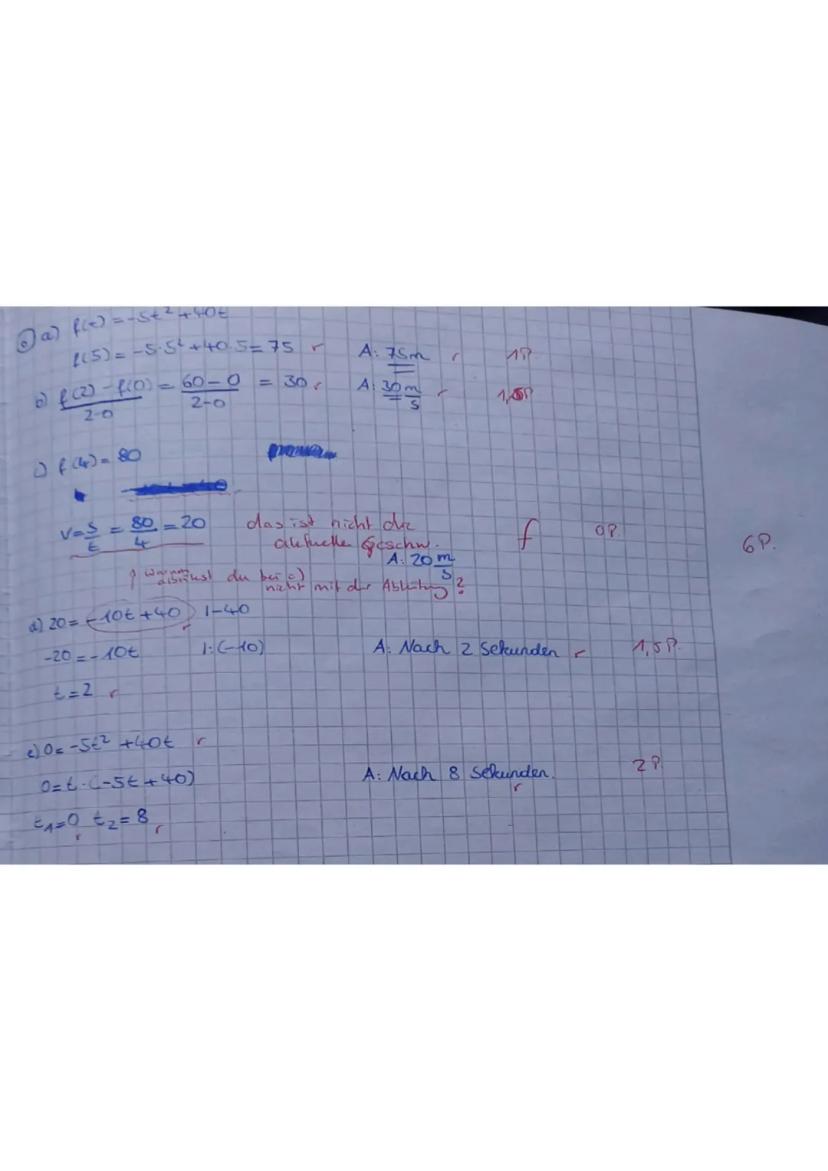 a) f(t) = -5t² + 40t
f(5) = -5·5² + 40·5 = 75 A: 75m 1P
b) f(2) - f(0) / 2-0 = 60-0 / 2-0 = 30 A: 30 m/s
c) f(4) = 80
v = s/t = 80/4 = 20 das ist nicht die f 0P.
aktuelle Geschw. 6P.
A: 20 m/s
warum du bei c)
nicht mit der Ableitung?
d) 20 = -10t + 40 | -40
-20 = -10t |:(-10) A: Nach 2 Sekunden 1,5P.
t = 2
e) 0 = -5t² + 40t
0 = t·(-5t + 40) A: Nach 8 Sekunden. 2P.
t₁ = 0 t₂ = 8